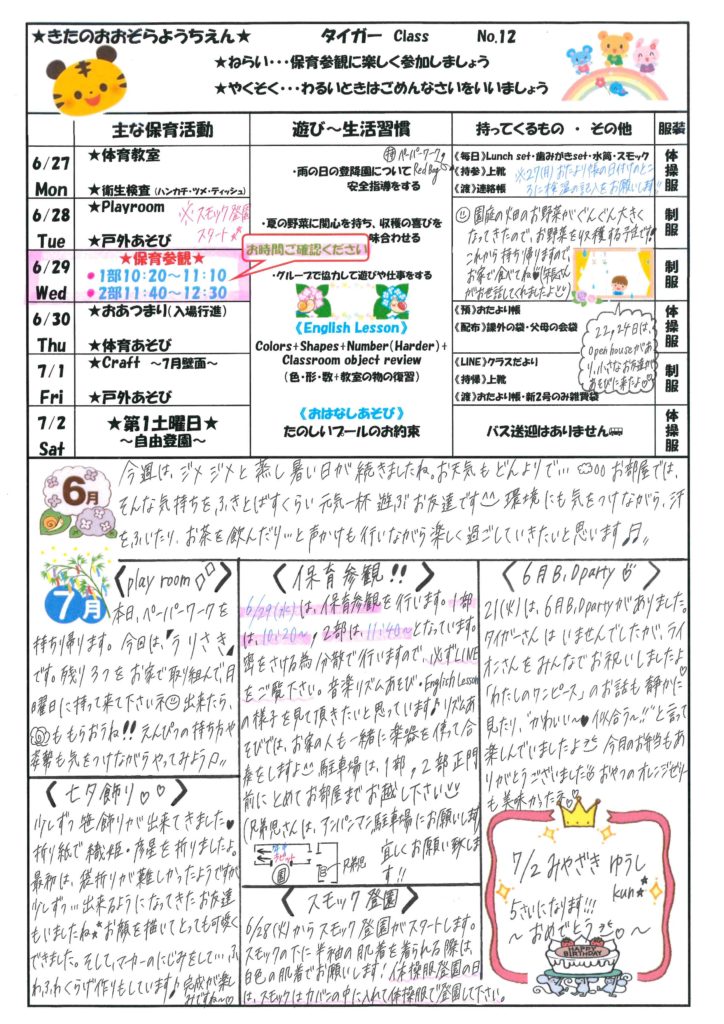 ★きたのおおぞらようちえん★ タイガー Class No.12
★ねらい・・・保育参観に楽しく参加しましょう
★やくそく・・・わるいときはごめんなさいをいいましょう
主な保育活動 遊び～生活習慣 持ってくるもの ・ その他 服装
6/27
Mon
★体育教室
★衛生検査(ハンカチ・ツメ・ティッシュ)
6/28
Tue
★Playroom
※スモック登園
スタート
★戸外あそび
6/29
Wed
★保育参観★
●1部10:20～11:10
●2部11:40～12:30
お時間ご確認ください
6/30
Thu
★おあつまり(入場行進)
★体育あそび
7/1
Fri
★Craft ～7月壁面～
★戸外あそび
7/2
Sat
★第1土曜日★
～自由登園～
ペーパーワーク
Red Bag
・雨の日の登降園について
安全指導をする
・夏の野菜に関心を持ち、収穫の喜びを
味合わせる
・グループで協力して遊びや仕事をする
《English Lesson》
Colors+Shapes+Number(Harder)+
Classroom object review
(色・形・数+教室の物の復習)
《おはなしあそび》
たのしいプールのお約束
《毎日》Lunch set・歯みがきset・水筒・スモック
《持参》上靴
《渡》連絡帳
※27(月)おたより帳の日付けのところに検温の記入をお願いします!!
園庭の畑のお野菜がぐんぐん大きく
なってきたので、お野菜を収穫する予定です!
これから持ち帰りますので、
お家で食べてね
がお世話してくれましたよ
《預》おたより帳
《配布》課外の袋・父母の会袋
22,24日は、
Open houseがあ
り、小さなお友達が
あそびに来たよ
《LINE》クラスだより
《持帰》上靴
《渡》おたより帳・新2号のみ雑費袋
バス送迎はありません
体操服
制服
制服
体操服
制服
体操服
6月
今週は、ジメジメと蒸し暑い日が続きましたね。お天気もどんよりで… お部屋では、
そんな気持ちを、ふきとばすくらい元気一杯遊ぶお友達です 環境にも気をつけながら、汗
をふいたり、お茶を飲んだり…と声かけも行いながら楽しく過ごしていきたいと思います♫
7月
〈play room〉
本日、ペーパーワークを
持ち帰ります。今回は、"うりさき"
です。残り3つをお家で取り組んで、月
曜日に持って来て下さいネ 出来たら、
ももらおうね!! えんぴつの持ち方や
姿勢も気をつけながらやってみよう♫
〈七夕飾り♡♡〉
少しずつ笹飾りが出来てきました♥
折り紙で織姫・彦星を折りましたよ。
最初は、袋折りが難しかったようですが
少しずつ…出来るようになってきたお友達
もいましたね★お顔を描いてとっても可愛く
できました。そして、マーカーのにじみをして…ふ
わふわくらげ作りもしています♪完成が楽し
みですね～♡
〈保育参観!!〉
6/29(水)は、保育参観を行います。1部
は、10:20～、2部は、11:40～となっています。
密をさける為分散で行いますので、必ずLINE
をご覧下さい。音楽リズムあそび・English Lesson
の様子を見て頂きたいと思っています♪リズムあ
そびでは、お家の人も一緒に楽器を使って合
奏をしますよ 駐車場は、1部、2部正門
前にとめてお部屋までお越し下さい
(兄弟児さんは、アンパンマン駐車場にお願いします)
ラビット
園
兄弟児
宜しくお願い致しま
す!!
〈スモック登園〉
6/28(火)からスモック登園がスタートします。
スモックの下に半袖の肌着を着られる際は、
白色の肌着でお願いします! 体操服登園の日
は、スモックはカバンの中に入れて体操服で登園して下さい。
〈6月B.Dparty〉
21(火)は、6月B.Dpartyがありました。
タイガーさんはいませんでしたが、ライ
オンさんをみんなでお祝いしましたよ
「わたしのワンピース」のお話も静かに
見たり、"かわいい～♥似合う～!!"と言って
楽しんでいましたよ 今月のお弁当もあ
りがとうございました おやつのオレンジゼリー
も美味かったネ
7/2 みやざき ゆうし
kun★
5さいになります!!!
～おめでとう～
HAPPY BIRTHDAY